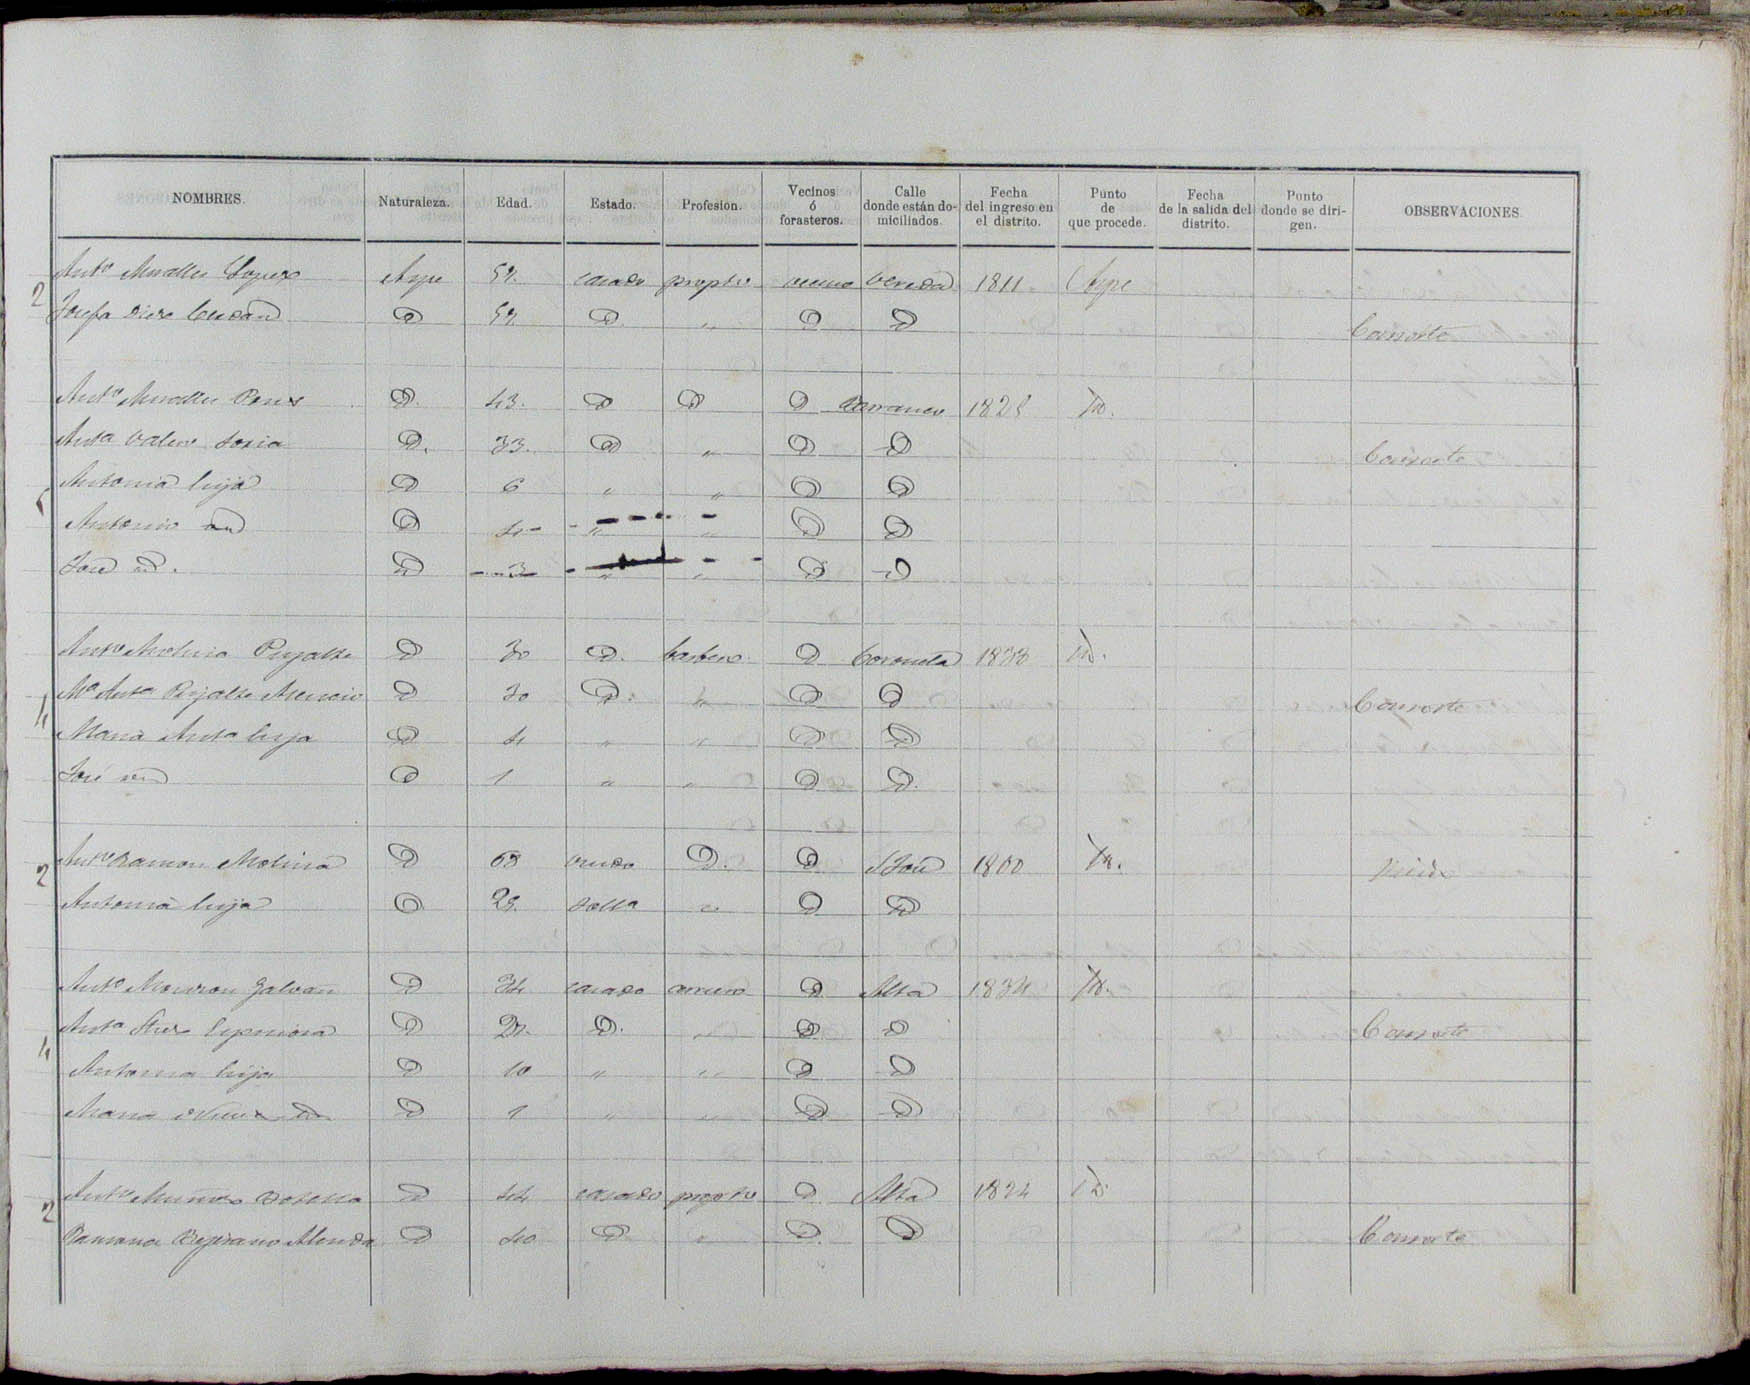 NOMBRES. Naturaleza. Edad. Estado. Profesión. Vecinos ó forasteros. Calle donde están domiciliados. Fecha del ingreso en el distrito. Punto de que procede. Fecha de la salida del distrito. Punto donde se dirigen. OBSERVACIONES.
2 Antº Miralles Lopez Aspe 57. casado proptrio vecino Vereda 1811 Aspe
Josefa D 57 D. „ D D Consorte
Antº Miralles Perez D. 43. D D D Barranco 1825 Id.
Antª Valero Soria D. 33. D „ D D Consorte
5 Antonia hija D 6 „ „ D D
Antonio id D 4 „ „ D D
José id. D 3 „ „ D D
Antº Molina Pujalte D 30 D. barbero D Coroneta 1838 Id.
Mª Antª Pujalte Asencio D 30 D. „ D D Consorte
4 Maria Antª hija D 4 „ „ D D
José id D 1 „ „ D D.
2 Antº Ramon Molina D 68 viudo D. D S José 1800 Id. Viudo
Antonia hija D 29. solta „ D D
Antº Mouron Galvan D 34 casado arriero D Alta 1834 Id.
Antª Espinosa D 27. D. „ D D Consorte
4 Antonia hija D 10 „ „ D D
Maria id D 1 „ „ D D
2 Antº Muñoz Botella D 44 casado proptrio D Alta 1824 Id
Ramona Bejerano Alenda D 40 D „ D D Consorte